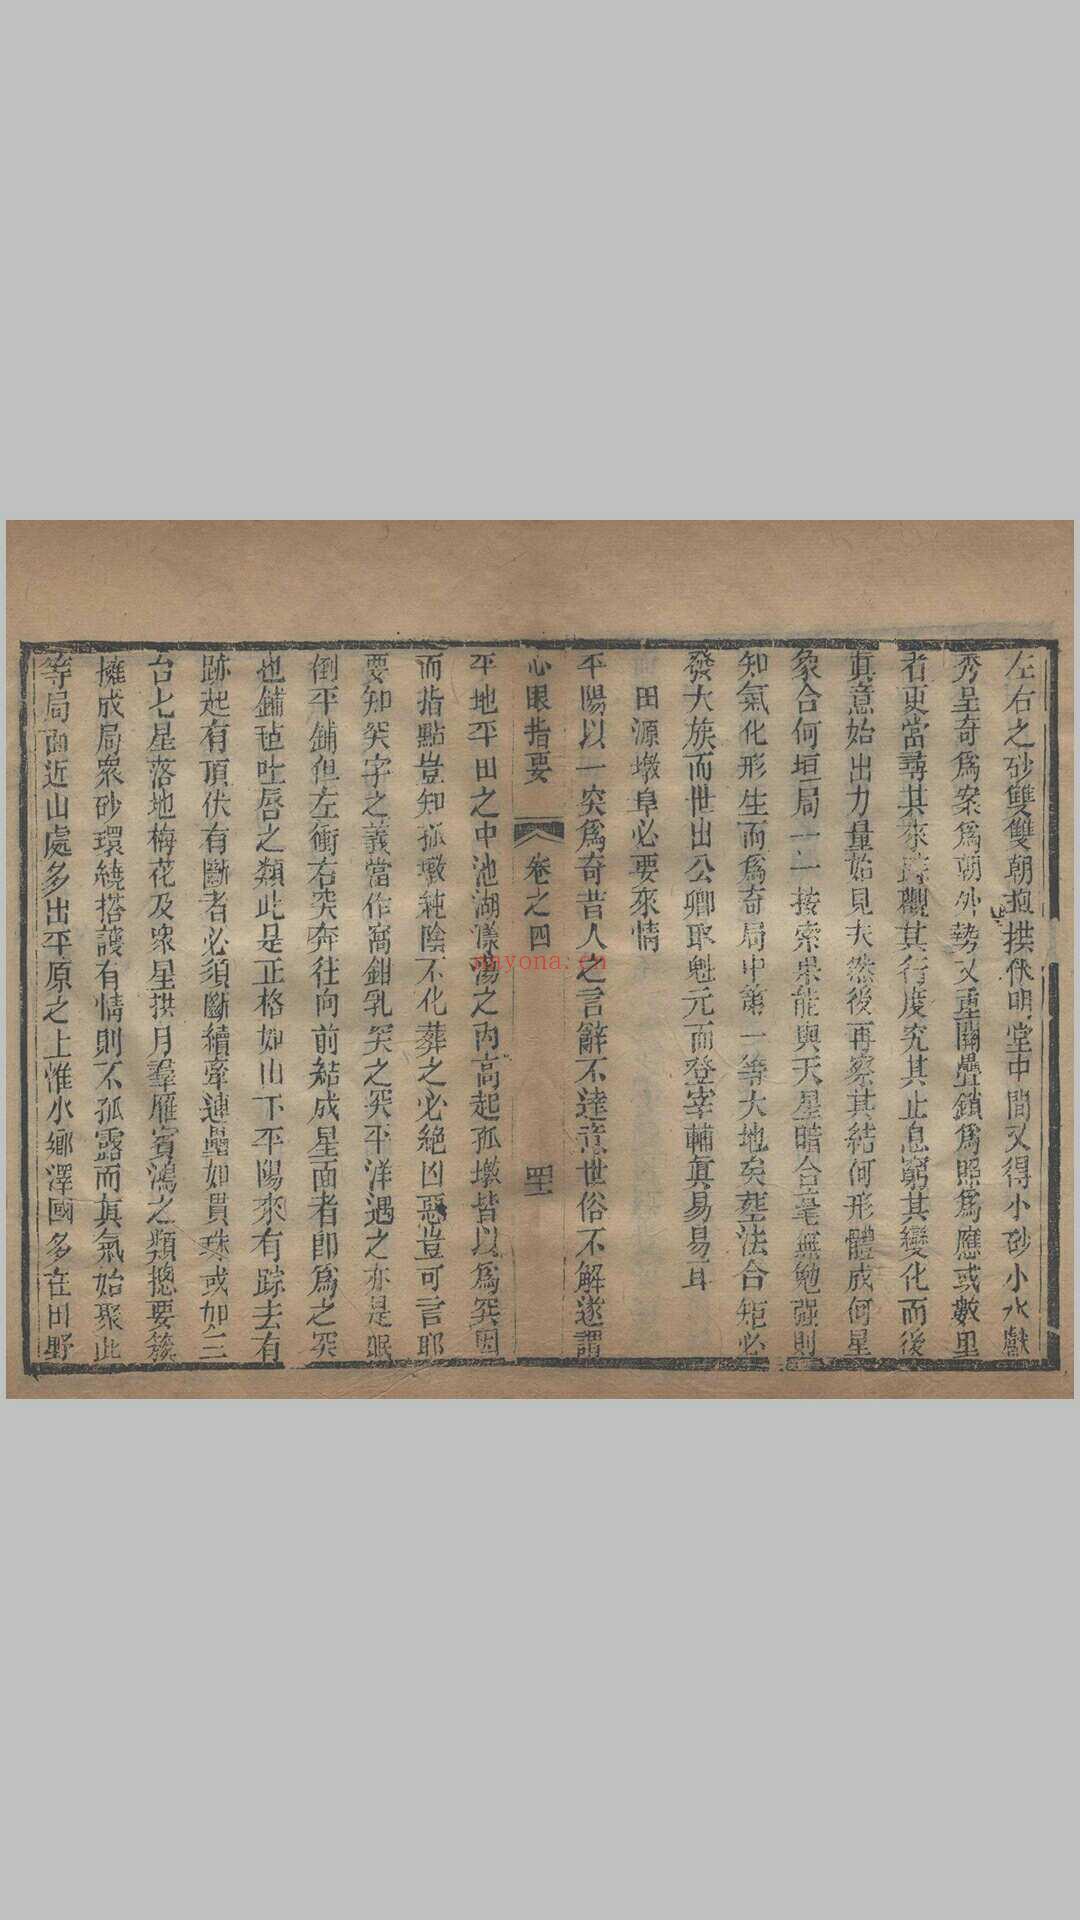 左右之砂雙雙朝抱拱伏明堂中間又得小砂小水獻
秀呈奇爲案爲朝外勢又重關疊鎖爲照爲應或數里
者更當尋其來踪觀其行度究其止息窮其變化而後
眞意始出力量始見夫然後再察其結何形體成何星
象合何垣局一一按索果能與天星暗合毫無勉强則
知氣化形生而爲奇局中第一等大地矣塟法合矩必
發大族而世出公卿取魁元而登宰輔眞易易耳
田源墩阜必要來情
平陽以一突爲奇昔人之言辭不達意世俗不解遂謂
心眼指要 卷之四 四
平地平田之中池湖漾蕩之内高起孤墩皆以爲突因
而指點豈知孤墩純陰不化葬之必絶凶惡豈可言耶
要知突字之義當作窩鉗乳突之突平洋遇之亦是眠
倒平鋪但左衝右突奔往向前結成星面者卽爲之突
也鋪毡吐唇之類此是正格如山下平陽來有踪去有
跡起有頂伏有斷者必須斷續牽連纍如貫珠或如三
台七星落地梅花及衆星拱月羣雁賓鴻之類揔要簇
擁成局衆砂環繞搭護有情則不孤露而眞氣始聚此
等局面近山處多出平原之上惟水鄉澤國多在田野
nayona.cn